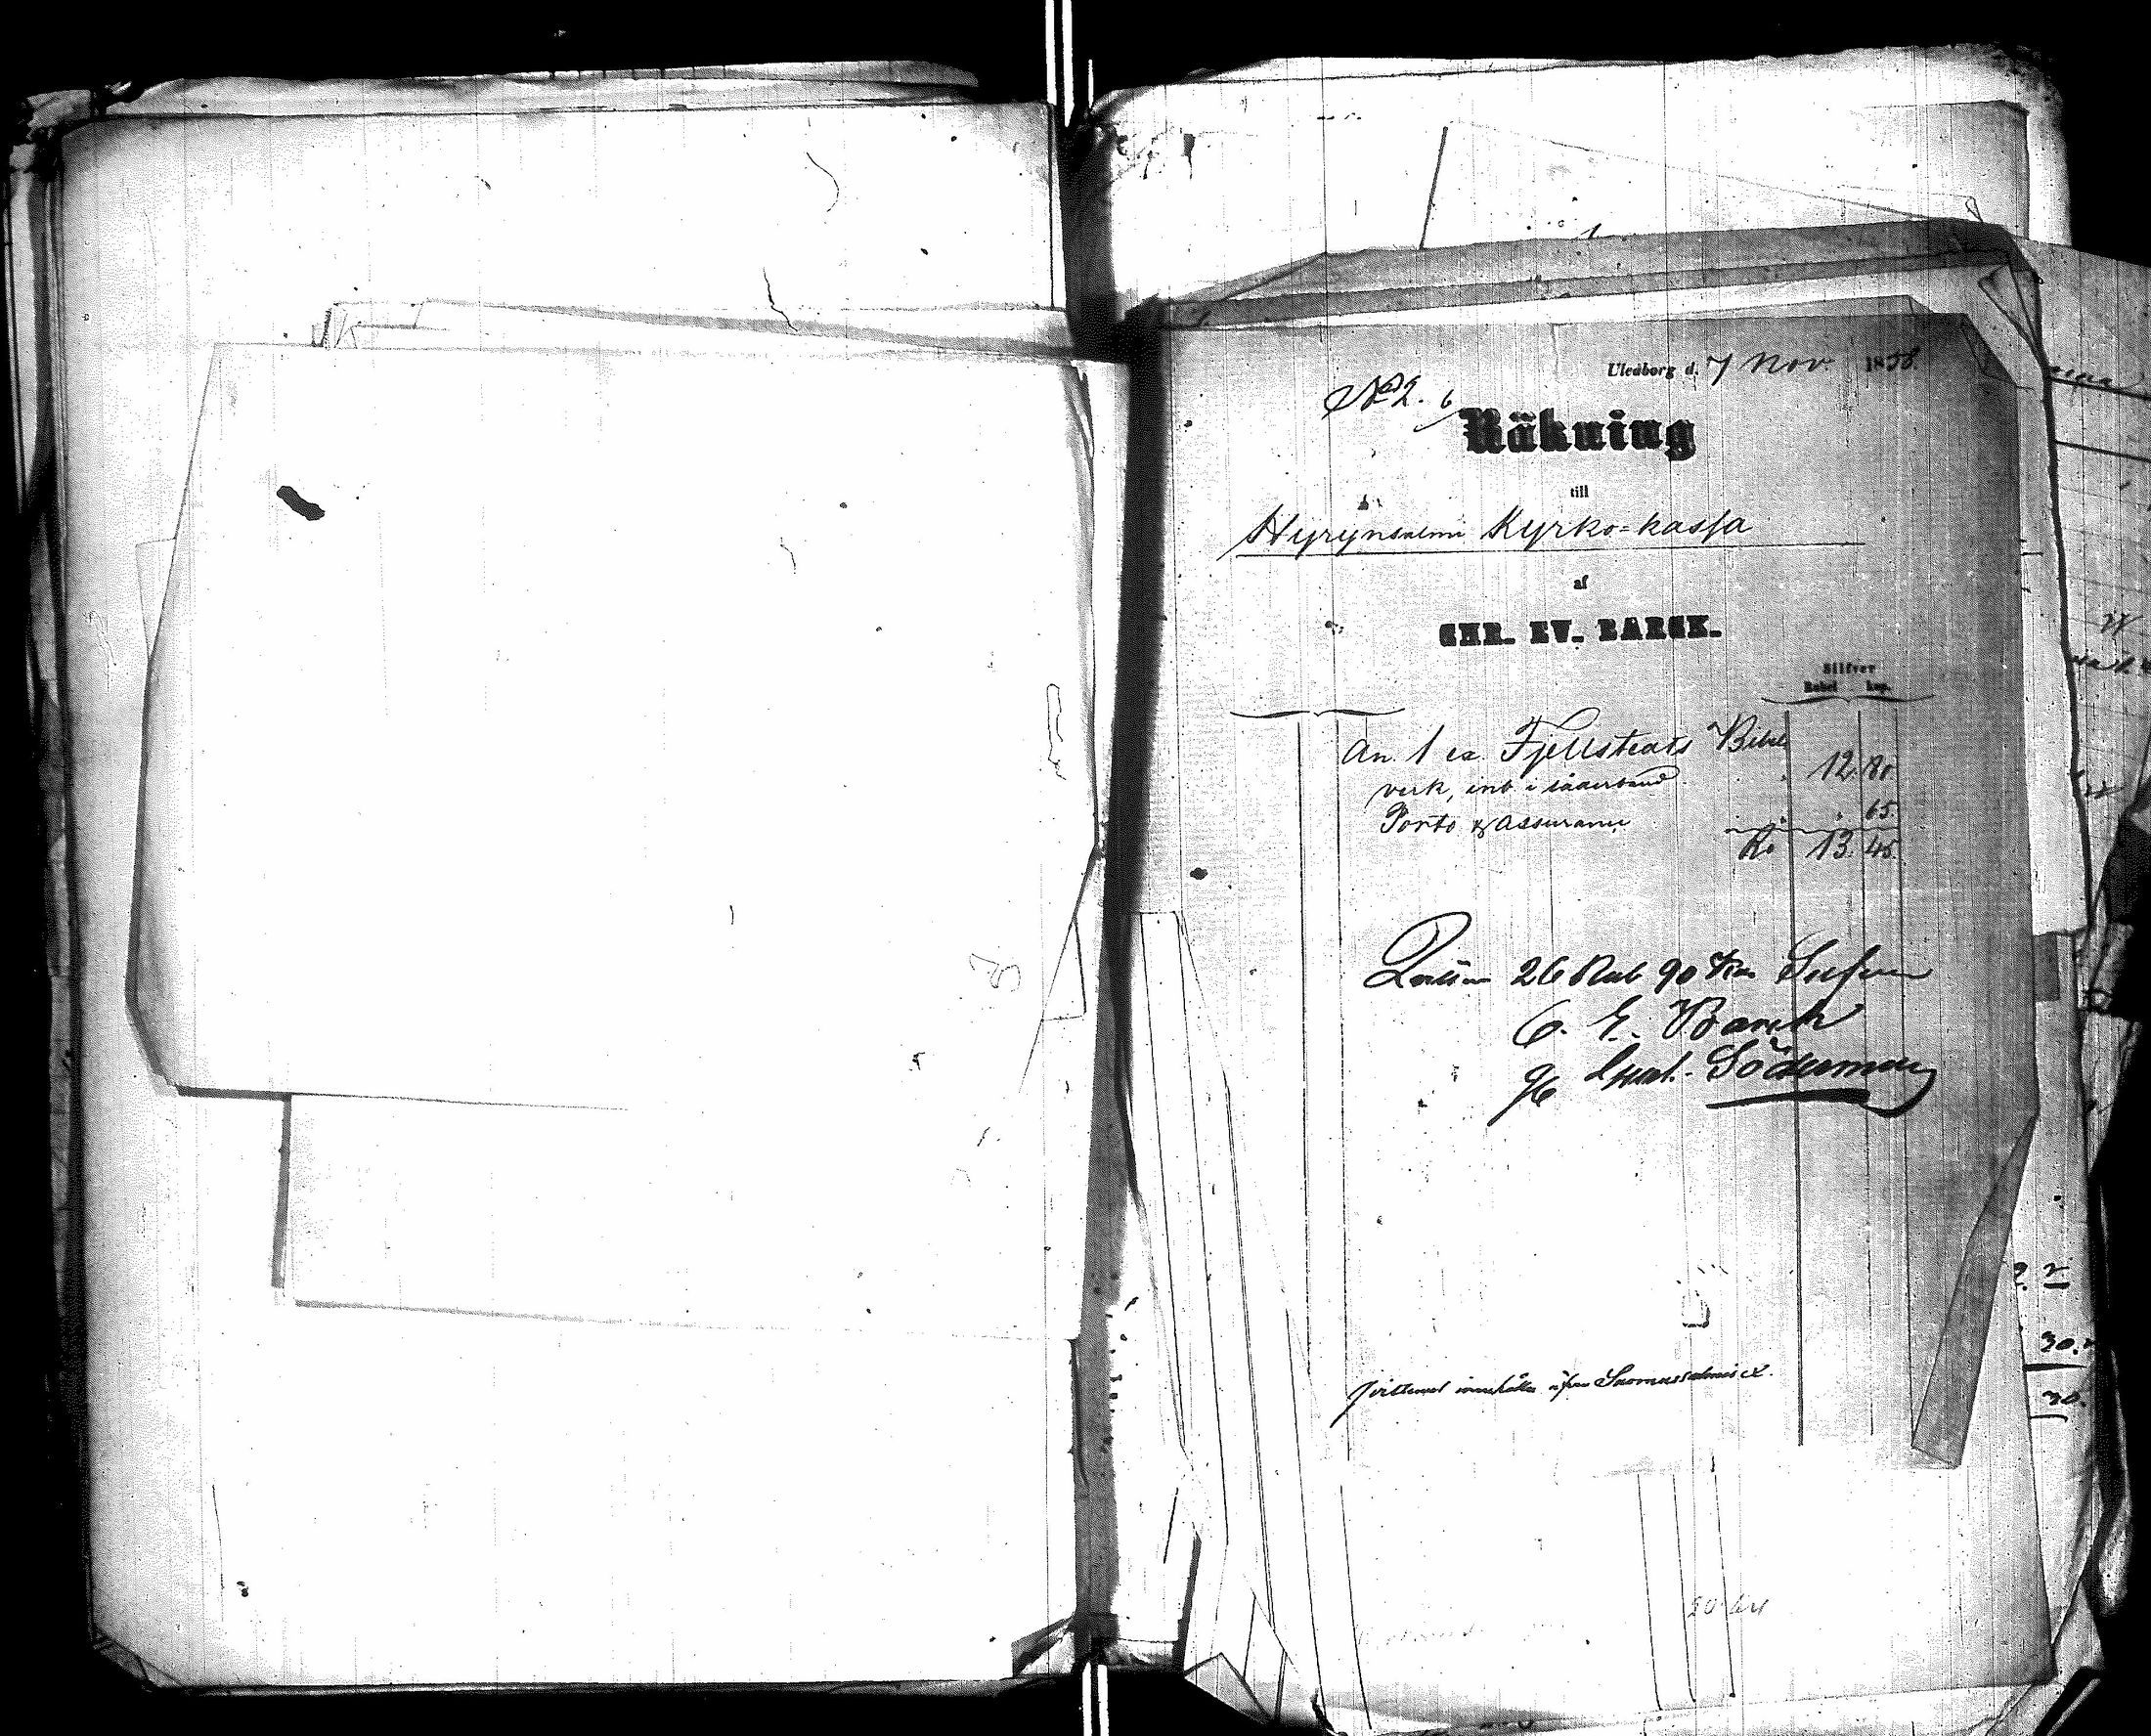 Uleåborg d. 7 Nov. 1858.
No 2. b
Räkning
till
Hyrynsalmi Kyrko-kassa
af
CHR. EV. BARCK.
Silfver
Rubel kop.
An 1 ex. Fjellstedts Bibel
verk, inb. i läderband 12. 80.
Porto & Assurance 65.
Ro 13. 45.
26 Rub 90 Kop Silfver
C. E. Barck
Söderman
innehålla äfven Suomussalmis ex.
30.
30.